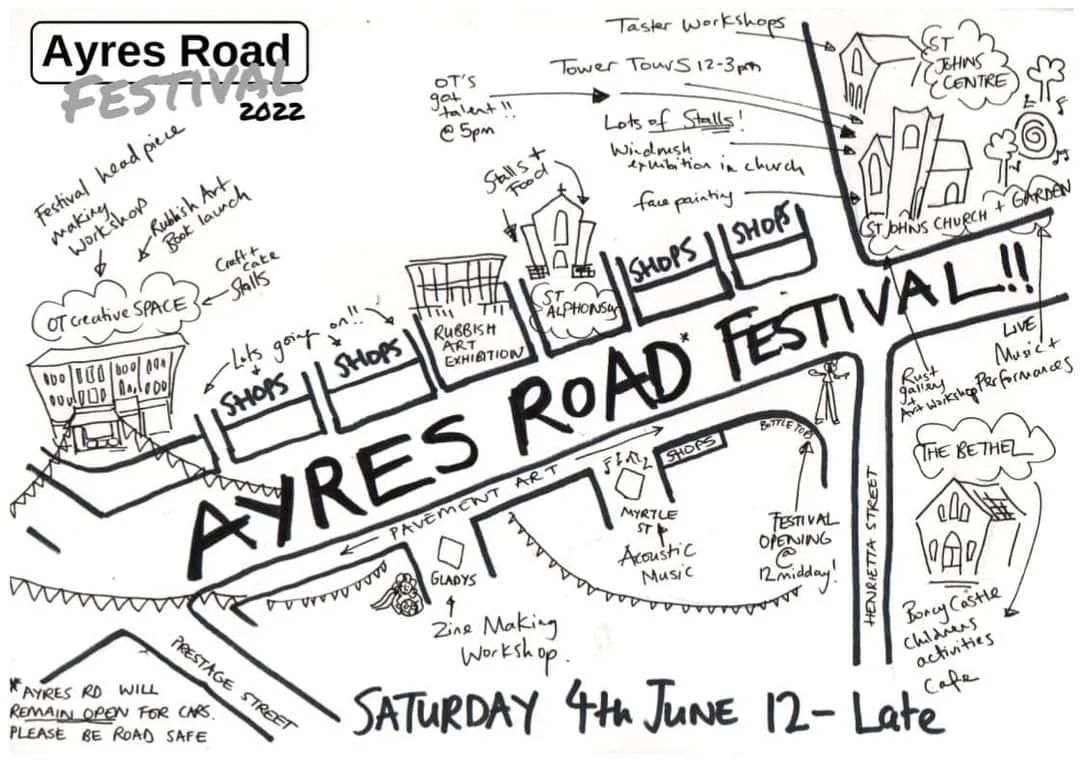 Ayres Road
FESTIVAL
2022
Taster Workshops
Tower Tours 12-3pm
OT's
got
talent!!
@ 5pm
Lots of Stalls!
Windrush
exhibition in church
face painting
ST
JOHNS
CENTRE
ST JOHNS CHURCH + GARDEN
Festival head piece
making
workshop
Rubbish Art
Book launch
Craft +
cake
Stalls
OT creative SPACE
Stalls +
Food
Lots going on!!
SHOPS
SHOPS
RUBBISH
ART
EXHIBITION
ST
ALPHONSUS
SHOPS
SHOPS
AYRES ROAD* FESTIVAL!!
LIVE
Music +
Performances
Rust
gallery
+
Art workshop
PAVEMENT ART
SHOPS
BOTTLE TOPS
MYRTLE
ST
Acoustic
Music
FESTIVAL
OPENING
@
12 midday!
GLADYS
Zine Making
Workshop.
HENRIETTA STREET
THE BETHEL
Boncy Castle
childrens
activities
cafe
PRESTAGE STREET
*AYRES RD WILL
REMAIN OPEN FOR CARS.
PLEASE BE ROAD SAFE
SATURDAY 4th JUNE 12- Late